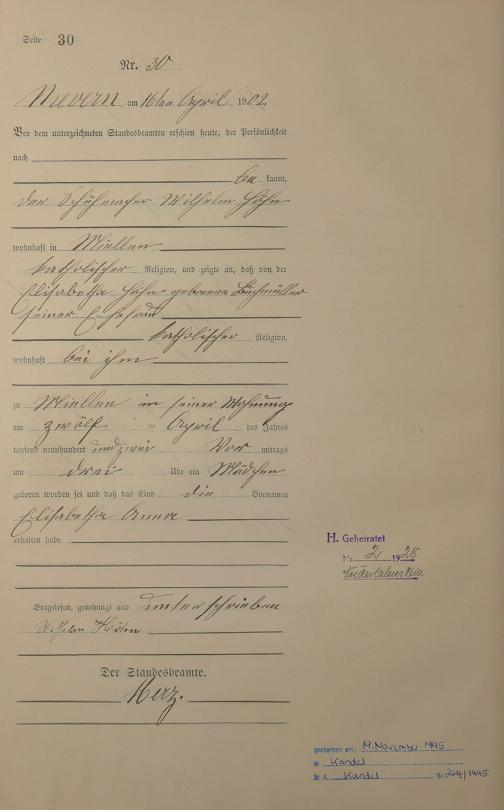 Seite 30
Nr. 30
Nievern am 16ten April 1902
Vor dem unterzeichneten Standesbeamten erschien heute, der Persönlichkeit
nach
be kannt,
der Schuhmacher Wilhelm Höhn
wohnhaft in Miellen
katholischer Religion, und zeigte an, daß von der
Elisabetha Höhn geborene Buchmüller
seiner Ehefrau
katholischer Religion,
wohnhaft bei ihm
zu Miellen in seiner Wohnung
am zwölften April des Jahres
tausend neunhundert und zwei Vor mittags
um drei Uhr ein Mädchen
geboren worden sei und daß das Kind die Vornamen
Elisabetha Anna
erhalten habe.
Vorgelesen, genehmigt und unterschrieben
Wilhelm Höhn
Der Standesbeamte.
Merz.
H. Geheiratet
Nr. 2 1925
Niederlahnstein
gestorben am: 19. November 1995
in Kandel
St. A. Kandel Nr. 244/1995